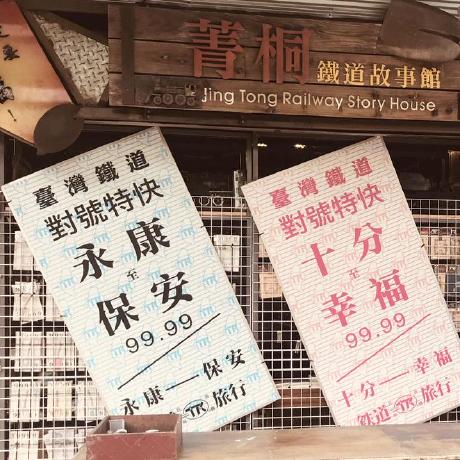 菁桐
鐵道故事館
Jing Tong Railway Story House
臺灣鐵道
對號特快
永康
至
保安
99.99
永康——保安
旅行
臺灣鐵道
對號特快
十分
至
幸福
99.99
十分——幸福
鉄道 旅行